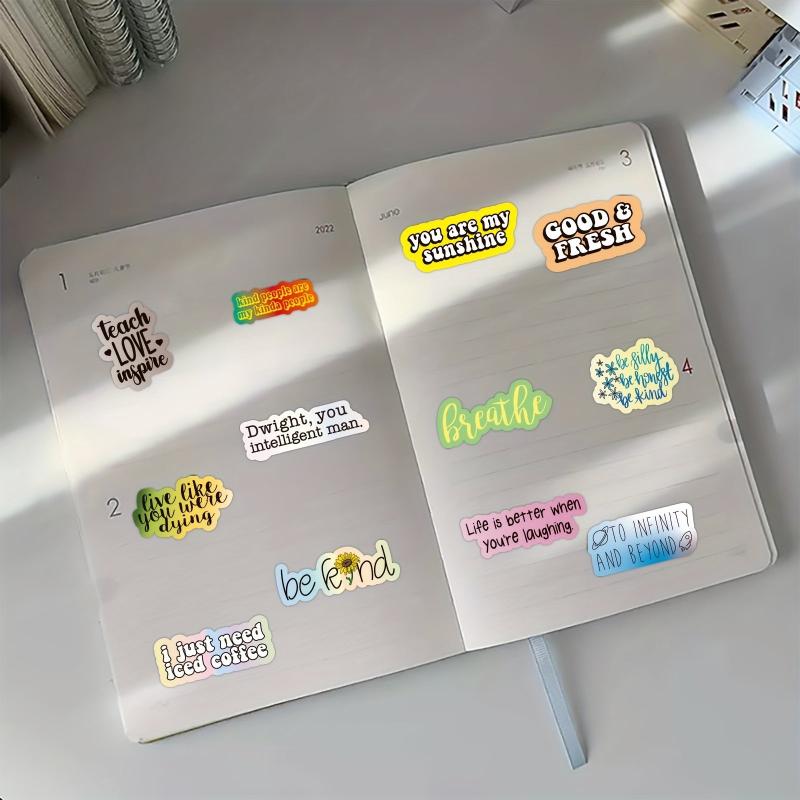 1
2022
teach
LOVE
inspire
kind people are
my kinda people
Dwight, you
intelligent man.
2
live like
you were
dying
be kind
i just need
iced coffee
3
you are my
sunshine
GOOD &
FRESH
breathe
be silly
be honest
be kind
4
Life is better when
you're laughing.
TO INFINITY
AND BEYOND